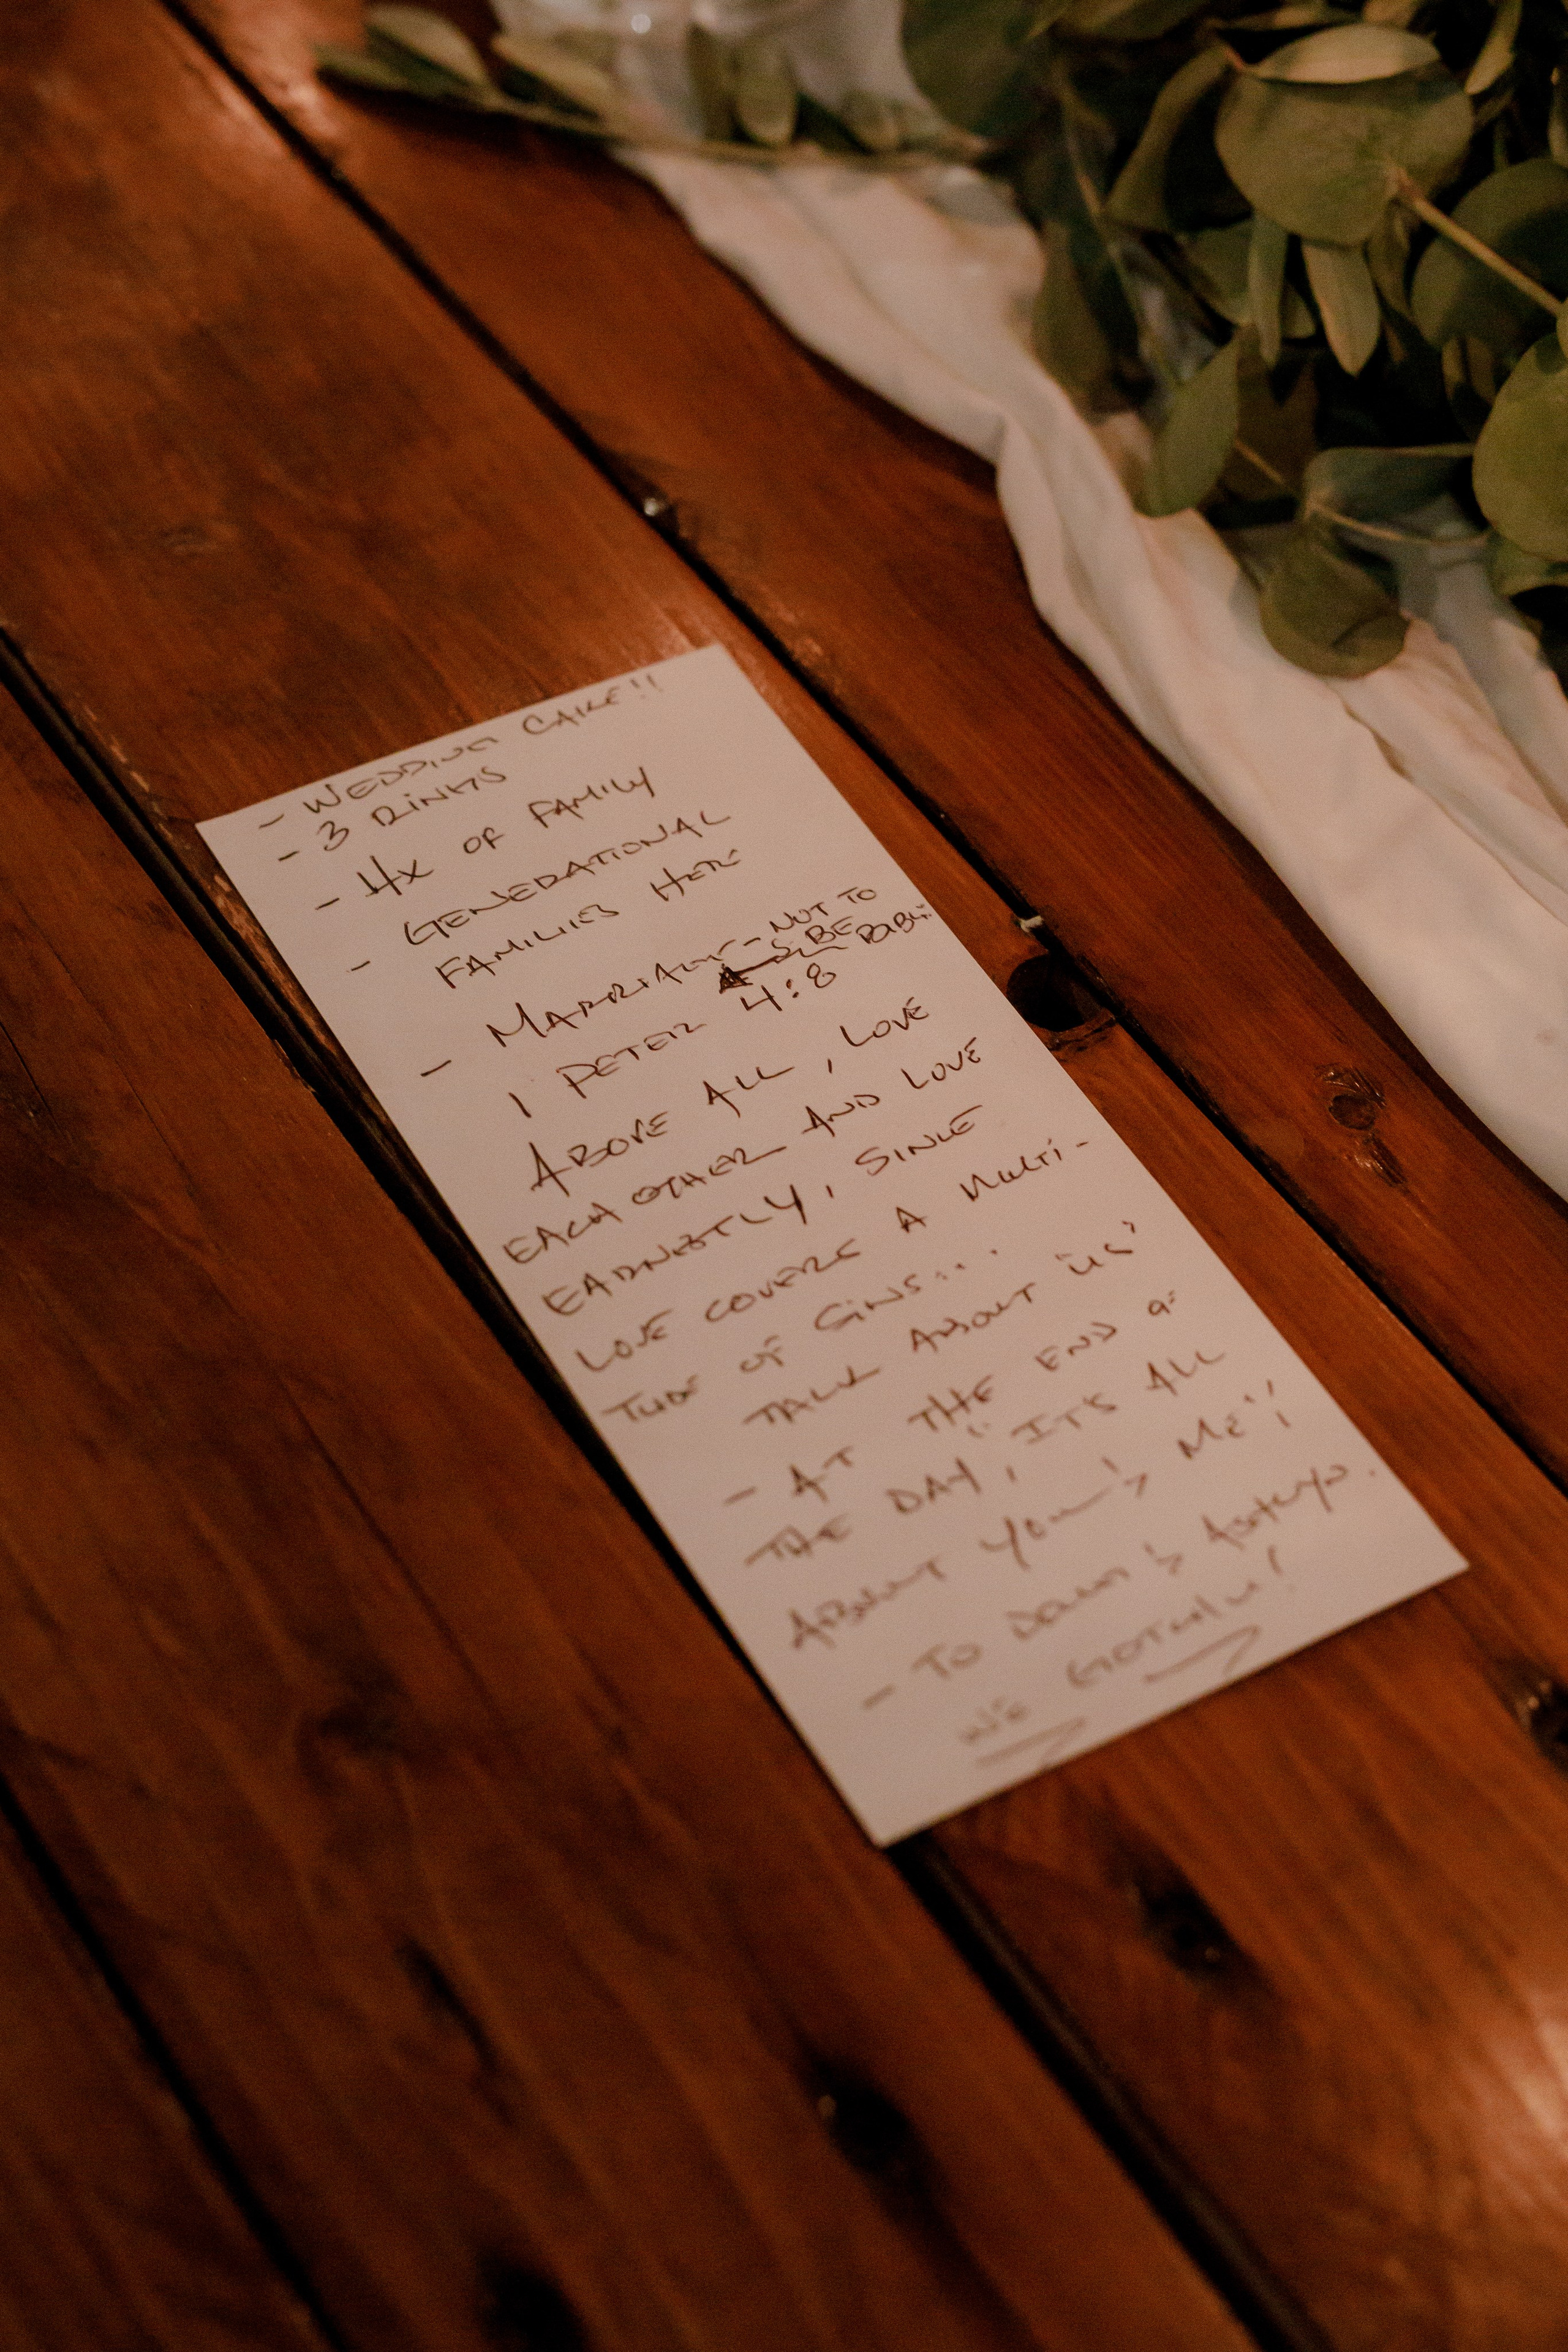 - WEDDING CAKE!!
- 3 RINGS
- 4X OF FAMILY
- GENERATIONAL
FAMILIES HERE
- MARRIAGE - NOT TO
BE
1 PETER 4:8
ABOVE ALL, LOVE
EACH OTHER AND LOVE
EARNESTLY, SINCE
LOVE COVERS A MULTI-
TUDE OF SINS...
TALK ABOUT "US"
- AT THE END OF
THE DAY, "IT'S ALL
ABOUT YOU & ME"!
- TO &
WE